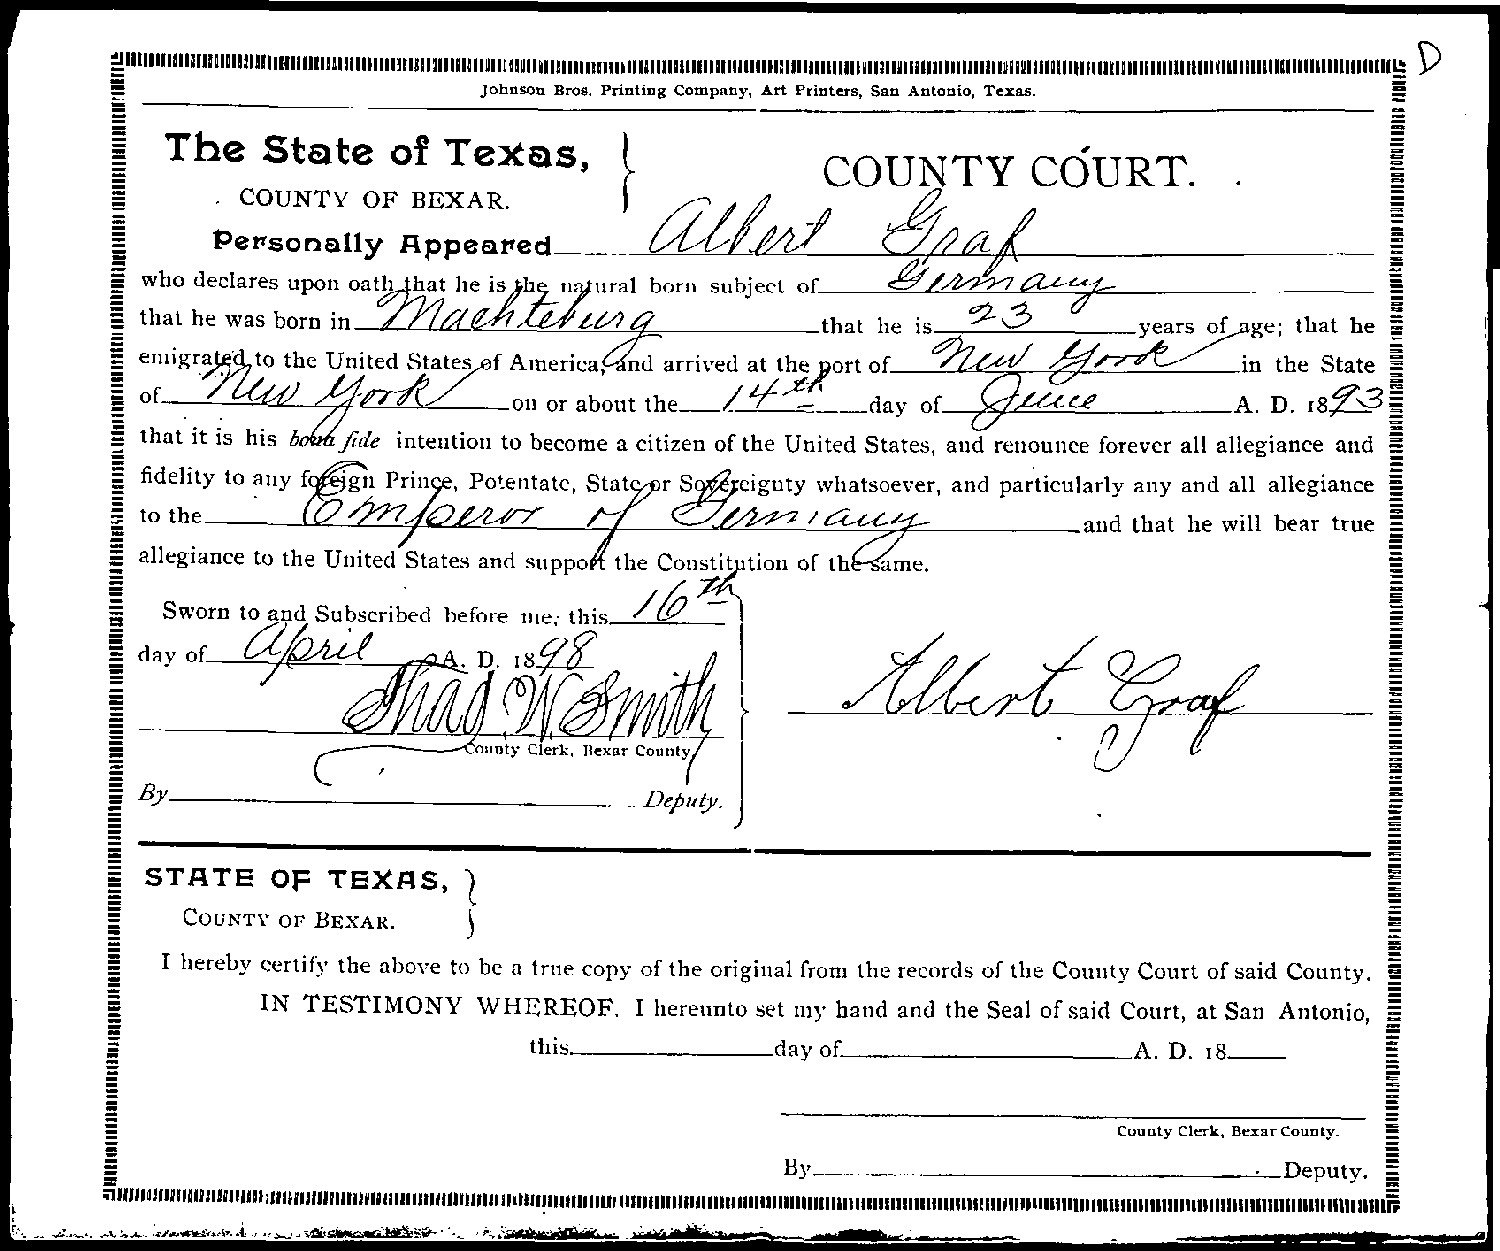 D
Johnson Bros. Printing Company, Art Printers, San Antonio, Texas.
The State of Texas, }
COUNTY OF BEXAR.
COUNTY COURT.
Personally Appeared Albert Graf
who declares upon oath that he is the natural born subject of Germany
that he was born in Machteburg that he is 23 years of age; that he
emigrated to the United States of America, and arrived at the port of New York in the State
of New York on or about the 14th day of June A. D. 1893
that it is his bona fide intention to become a citizen of the United States, and renounce forever all allegiance and
fidelity to any foreign Prince, Potentate, State or Sovereignty whatsoever, and particularly any and all allegiance
to the Emperor of Germany and that he will bear true
allegiance to the United States and support the Constitution of the same.
Sworn to and Subscribed before me, this 16th
day of April A. D. 1898
Thad. W. Smith
County Clerk, Bexar County,
By Deputy.
Albert Graf
STATE OF TEXAS, }
COUNTY OF BEXAR.
I hereby certify the above to be a true copy of the original from the records of the County Court of said County.
IN TESTIMONY WHEREOF, I hereunto set my hand and the Seal of said Court, at San Antonio,
this day of A. D. 18
County Clerk, Bexar County.
By Deputy.